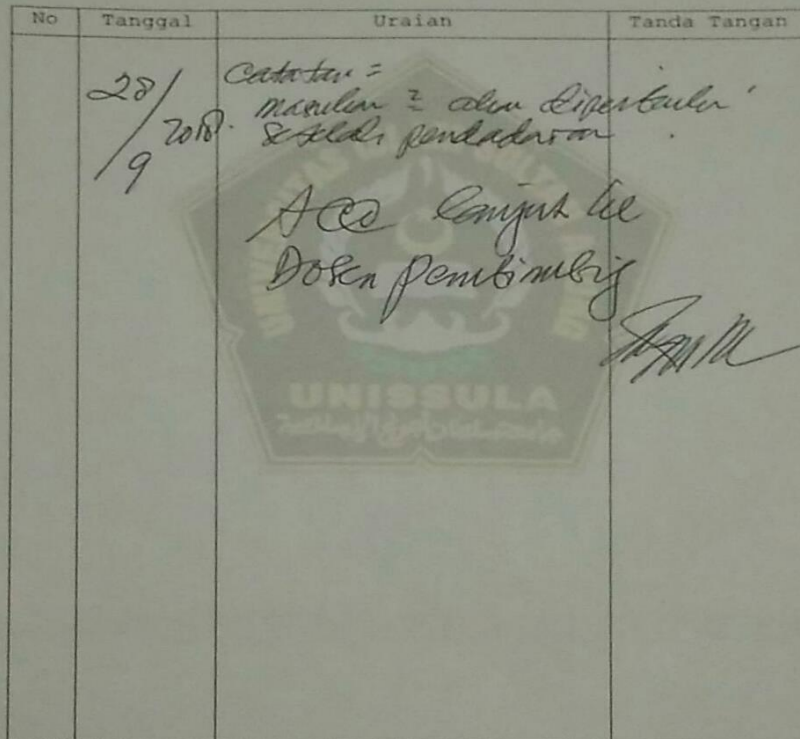 No Tanggal Uraian Tanda Tangan
28/9 2018. Catatan =
masukan2 akan diperbaiki
setelah pendadaran
Acc lanjut ke
Dosen pembimbing
UNISSULA